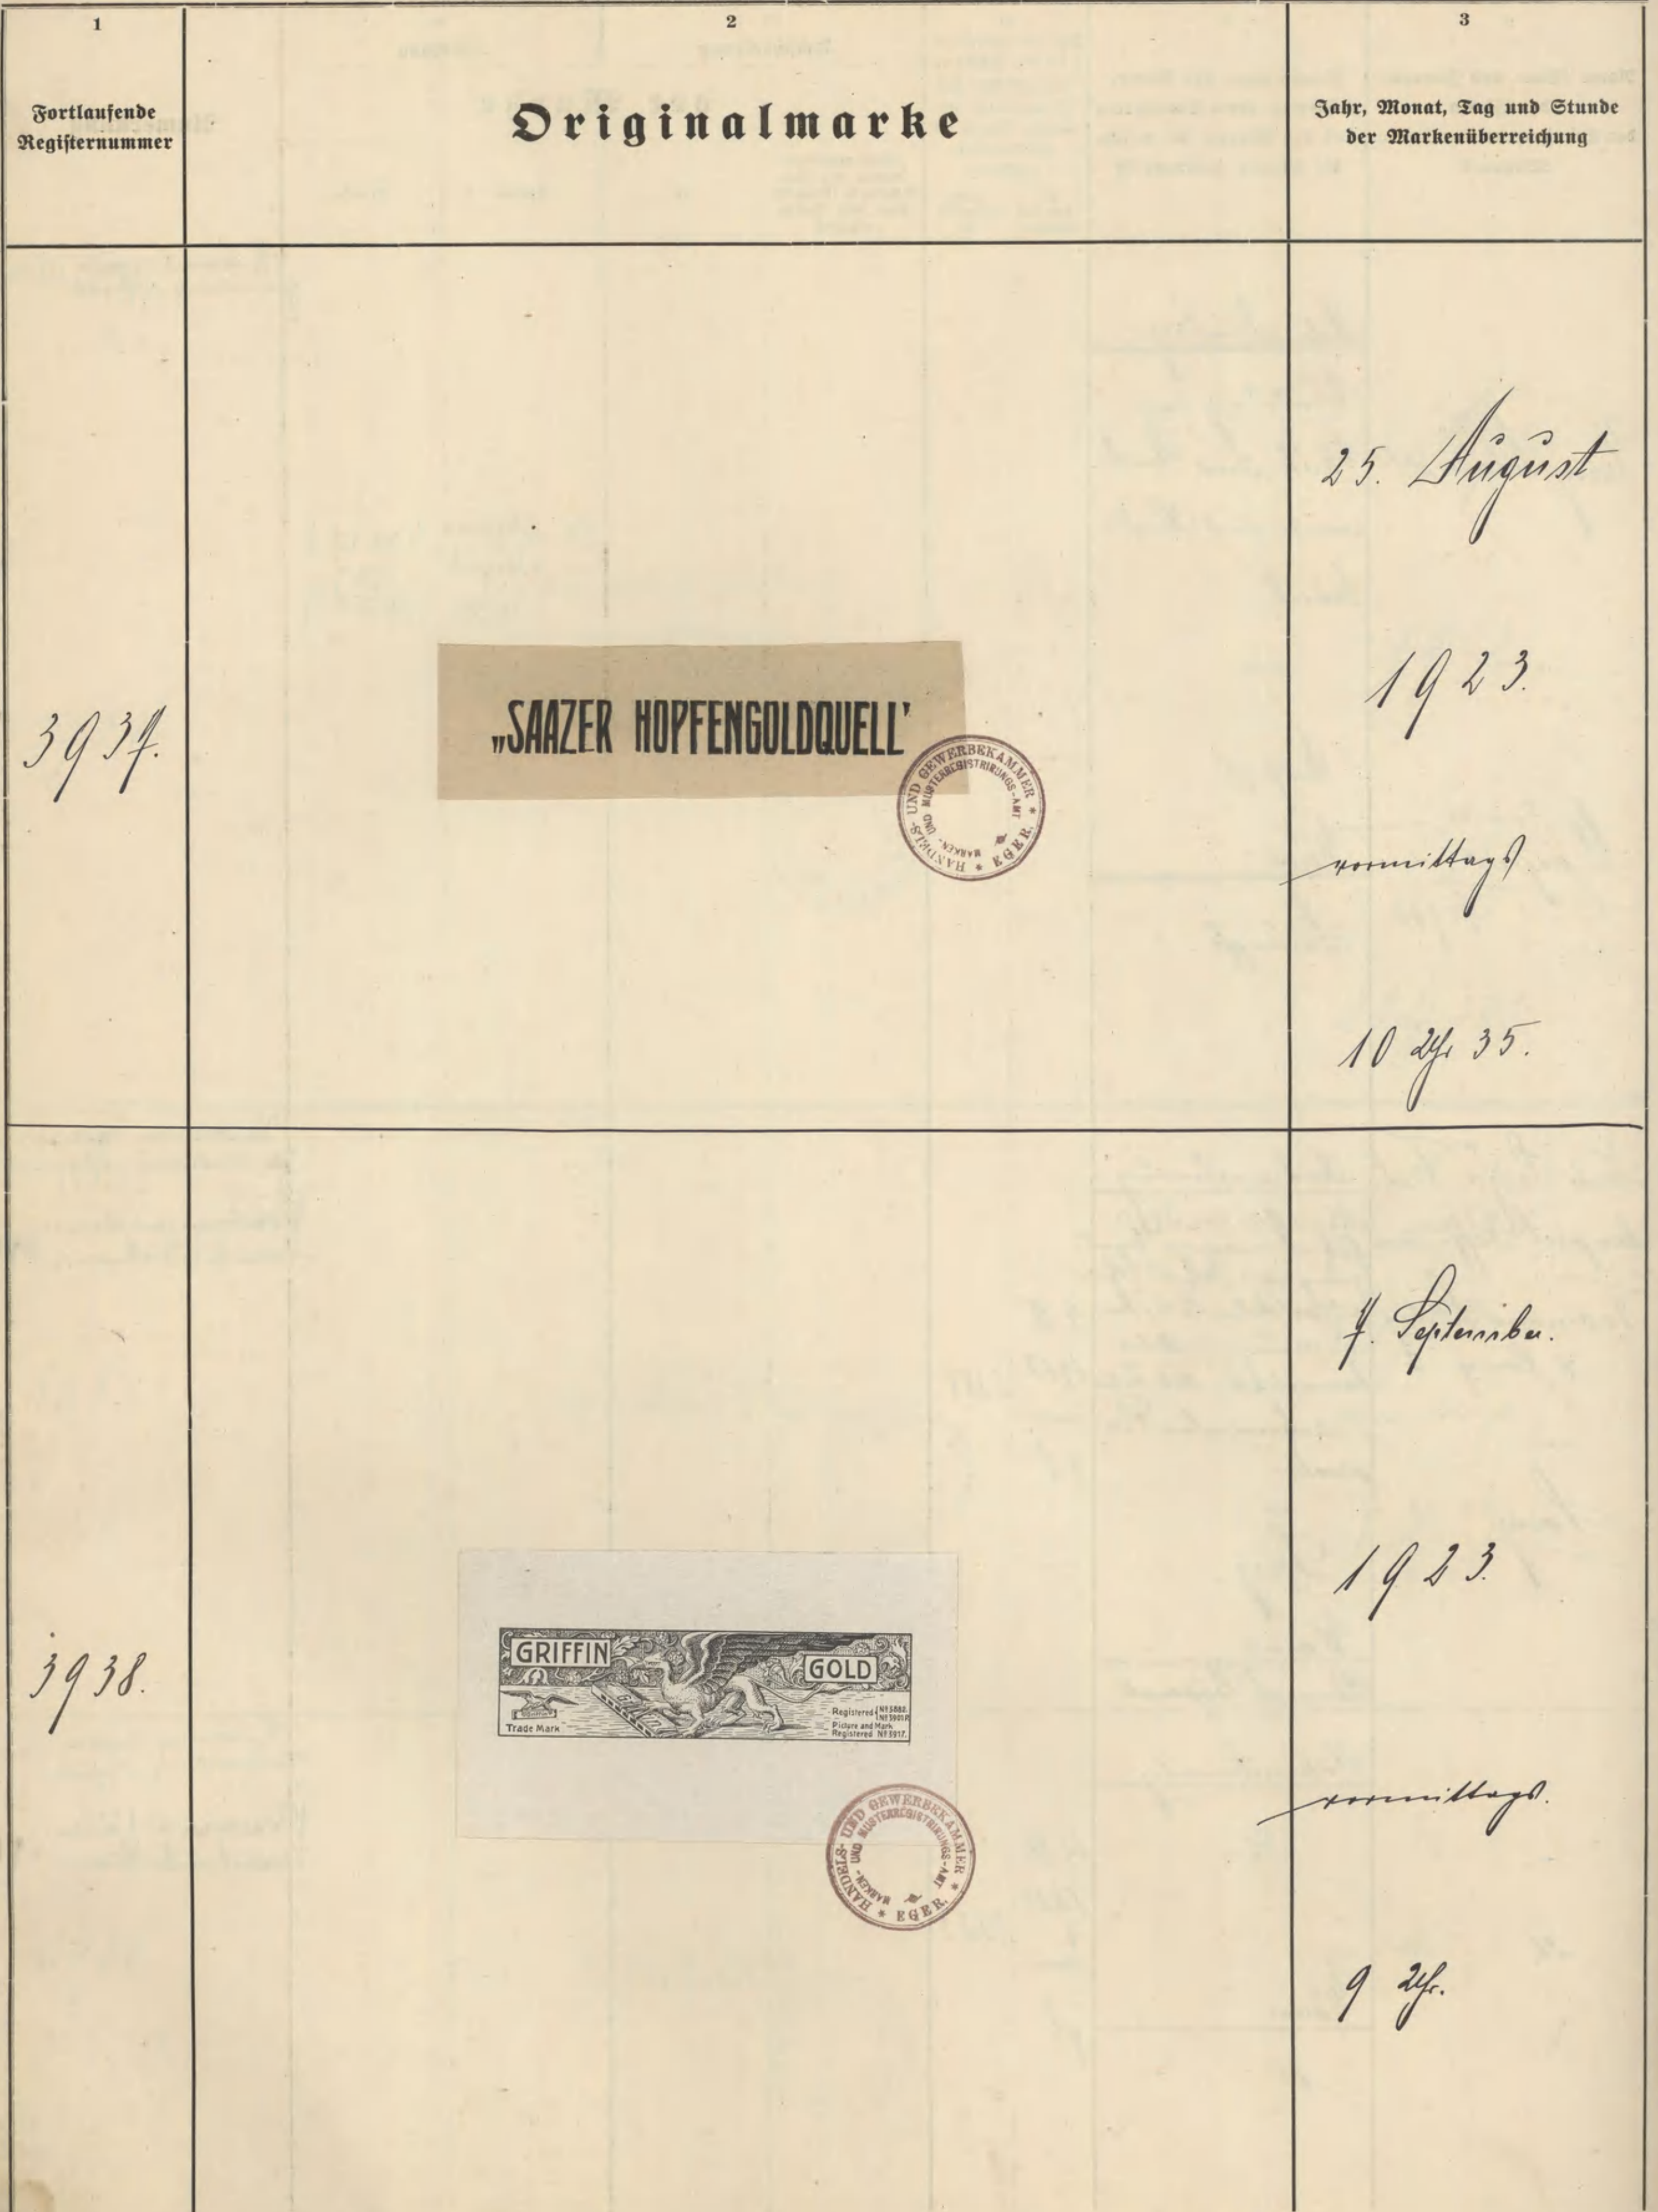 1
2
3
Fortlaufende
Registernummer
Originalmarke
Jahr, Monat, Tag und Stunde
der Markenüberreichung
3937.
„SAAZER HOPFENGOLDQUELL'
HANDELS- UND GEWERBEKAMMER * EGER. *
MARKEN- UND MUSTERREGISTRIRUNGS-AMT
25. August
1923.
vormittags
10 Uhr 35.
3938.
GRIFFIN
GOLD
Trade Mark
Registered
Picture and Mark
Registered Nº 3917.
HANDELS- UND GEWERBEKAMMER * EGER. *
MARKEN- UND MUSTERREGISTRIRUNGS-AMT
7. September.
1923.
vormittags.
9 Uhr.